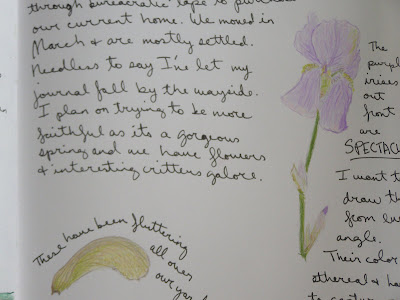 through bureaucratic tape to purchase
our current home. We moved in
March & are mostly settled.
Needless to say I've let my
journal fall by the wayside.
I plan on trying to be more
faithful as its a gorgeous
spring and we have flowers
& interesting critters galore.
These have been fluttering
all over
our
The
purpl
irises
out
front
are
SPECTAC
I want t
draw th
from
angle.
Their color
ethereal & ha